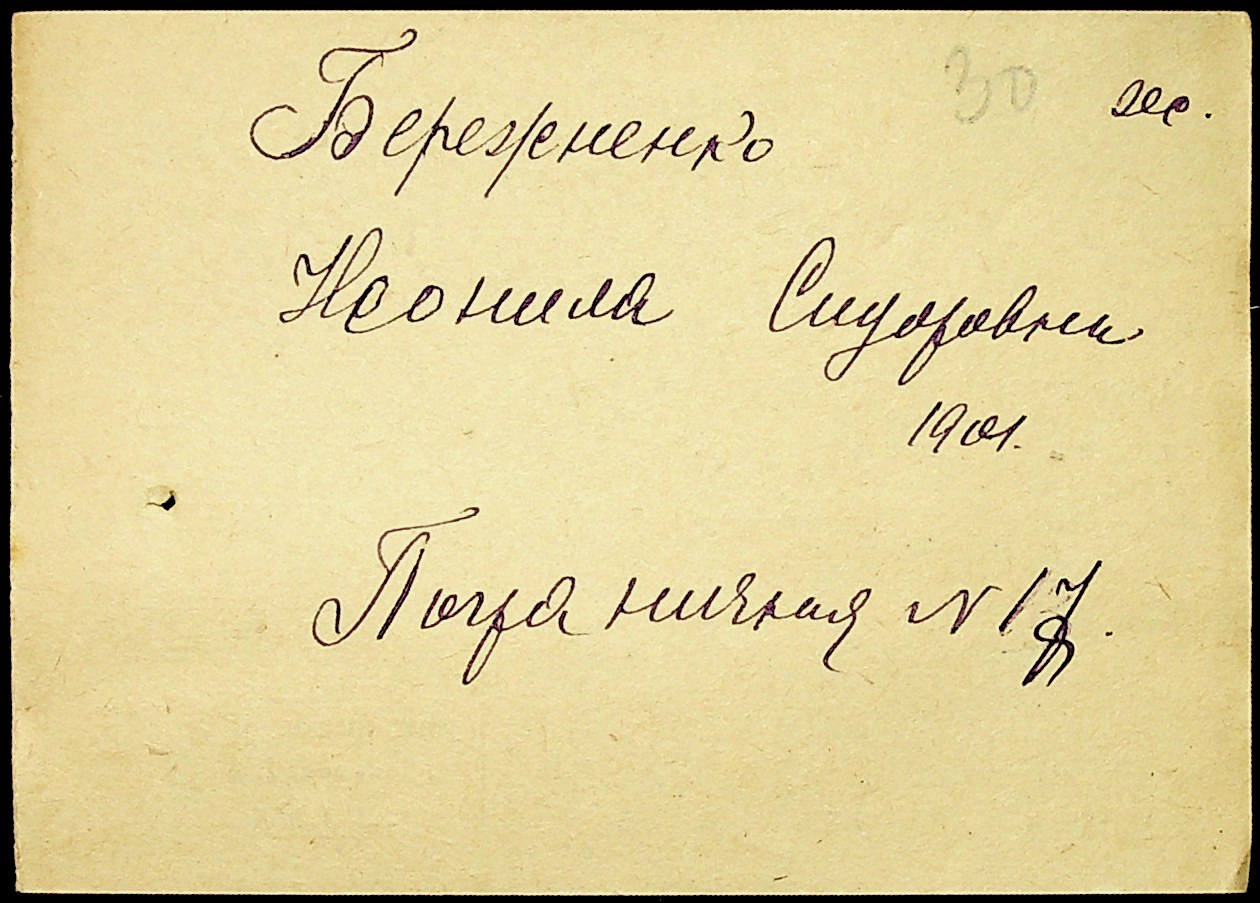 30
Бережненко
Неонила Сидоровна
1901.
Пограничная № 17.